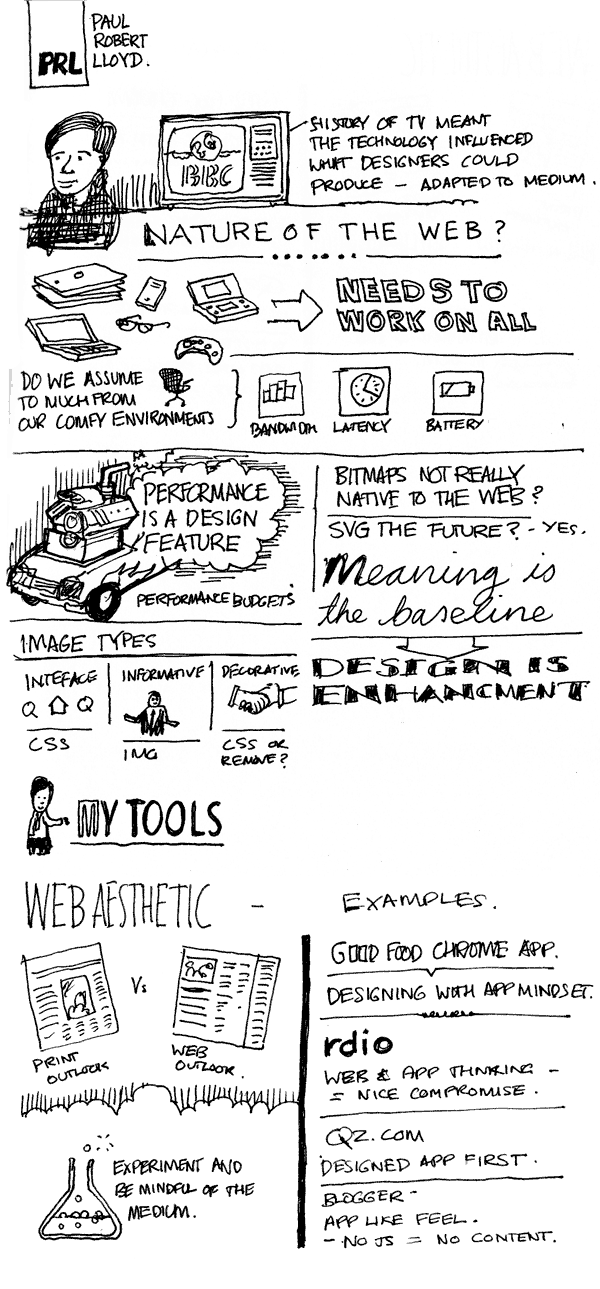 PRL
PAUL
ROBERT
LLOYD.
BBC
HISTORY OF TV MEANT
THE TECHNOLOGY INFLUENCED
WHAT DESIGNERS COULD
PRODUCE - ADAPTED TO MEDIUM.
NATURE OF THE WEB?
NEEDS TO
WORK ON ALL
DO WE ASSUME
TO MUCH FROM
OUR COMFY ENVIRONMENTS
BANDWIDTH
LATENCY
BATTERY
PERFORMANCE
IS A DESIGN
FEATURE
PERFORMANCE BUDGETS
BITMAPS NOT REALLY
NATIVE TO THE WEB?
SVG THE FUTURE? - YES.
Meaning is
the baseline
DESIGN IS
ENHANCMENT
IMAGE TYPES
INTEFACE
CSS
INFORMATIVE
IMG
DECORATIVE
CSS OR
REMOVE?
MY TOOLS
WEB AESTHETIC -
PRINT
OUTLOOK
Vs
WEB
OUTLOOK.
EXPERIMENT AND
BE MINDFUL OF THE
MEDIUM.
EXAMPLES.
GOOD FOOD CHROME APP.
DESIGNING WITH APP MINDSET.
rdio
WEB & APP THINKING -
= NICE COMPROMISE.
QZ.COM
DESIGNED APP FIRST.
BLOGGER -
APP LIKE FEEL.
- NO JS = NO CONTENT.